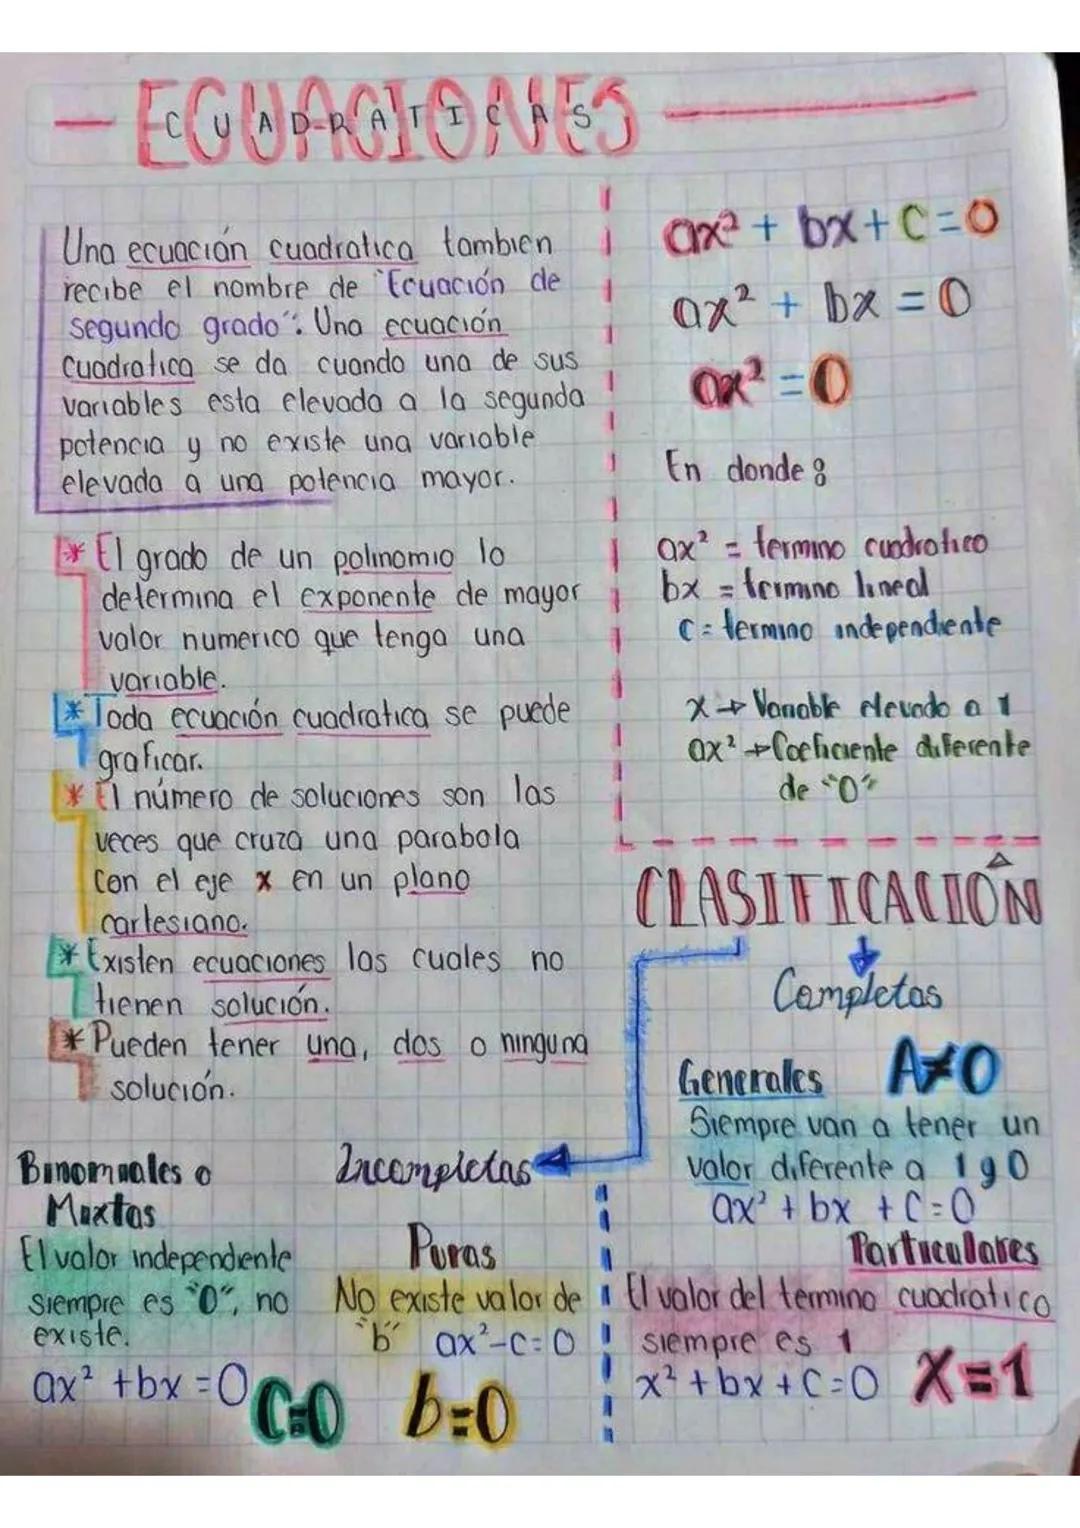 ECUACIONES
CUADRATICAS
Una ecuación cuadratica tambien
recibe el nombre de "Ecuación de
segundo grado". Una ecuación
cuadratica se da cuando una de sus
variables esta elevada a la segunda
potencia y no existe una variable
elevada a una potencia mayor.
* El grado de un polinomio lo
determina el exponente de mayor
valor numerico que tenga una
variable.
* Toda ecuación cuadratica se puede
graficar.
* El número de soluciones son las
veces que cruza una parabola
con el eje x en un plano
cartesiano.
* Existen ecuaciones las cuales no
tienen solución.
* Pueden tener una, dos o ninguna
solución.
ax² + bx + C = 0
ax² + bx = 0
ax² = 0
En donde:
ax² = termino cuadratico
bx = termino lineal
C = termino independiente
x → Variable elevado a 1
ax² → Coeficiente diferente
de "0"
CLASIFICACIÓN
Completas
Generales A≠0
Siempre van a tener un
valor diferente a 1 y 0
ax² + bx + C = 0
Particulares
El valor del termino cuadratico
siempre es 1
x² + bx + C = 0 X=1
Incompletas
Binomiales o
Mixtas
El valor independiente
siempre es "0", no
existe.
ax² + bx = 0 C=0
Puras
No existe valor de
"b" ax²-C=0
b=0